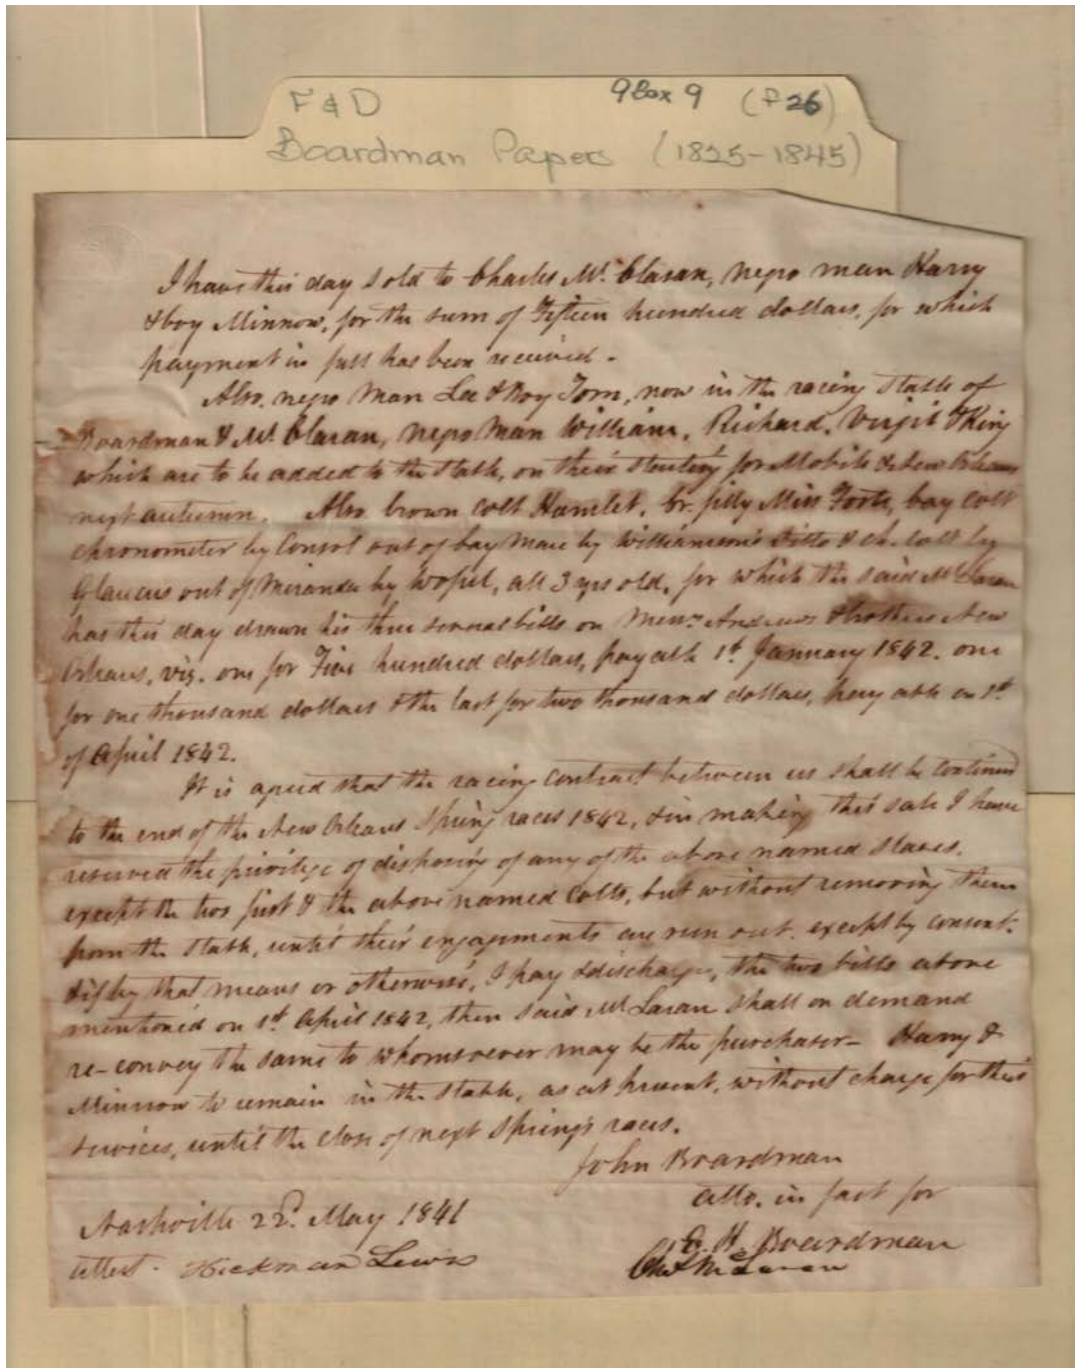 F & D 9 Box 9 (f 26)
Boardman Papers (1825-1845)
I have this day sold to Charles Mc. Claran, negro man Harry
& boy Minnow, for the sum of Fifteen hundred dollars, for which
payment in full has been received.
Also, negro man Lee & Boy Tom, now in the racing stable of
Boardman & Mc. Claran, negro man William, Richard, Virgil & King
which are to be added to the stable, on their starting for Mobile & New Orleans
next autumn. Also brown colt Hamlet, br. filly Miss Foote, bay colt
chronometer by Consol out of bay Mare by Williamson's Ditto & ch. colt by
Glaucus out of Miranda by Wofsel, all 3 yrs old, for which the said McClaran
has this day drawn his three several bills on Messrs Andrews & brothers New
Orleans, viz. one for Five hundred dollars, payable 1st January 1842. one
for one thousand dollars & the last for two thousand dollars, payable on 1st
of April 1842.
It is agreed that the racing contract between us shall be continued
to the end of the New Orleans Spring races 1842, & in making this sale I have
reserved the privilege of disposing of any of the above named slaves,
except the two first & the above named colts, but without removing them
from the stable, until their engagements are run out, except by consent.
& if by that means or otherwise, I pay & discharge, the two bills above
mentioned on 1st April 1842, then said McLaran shall on demand
re-convey the same to whomsoever may be the purchaser - Harry &
Minnow to remain in the stable, as at present, without charge for their
services, until the close of next Spring's races.
John Boardman
atto. in fact for
Nashville 22d. May 1841
H. Boardman
attest. Hickman Lewis
Chas McLaran